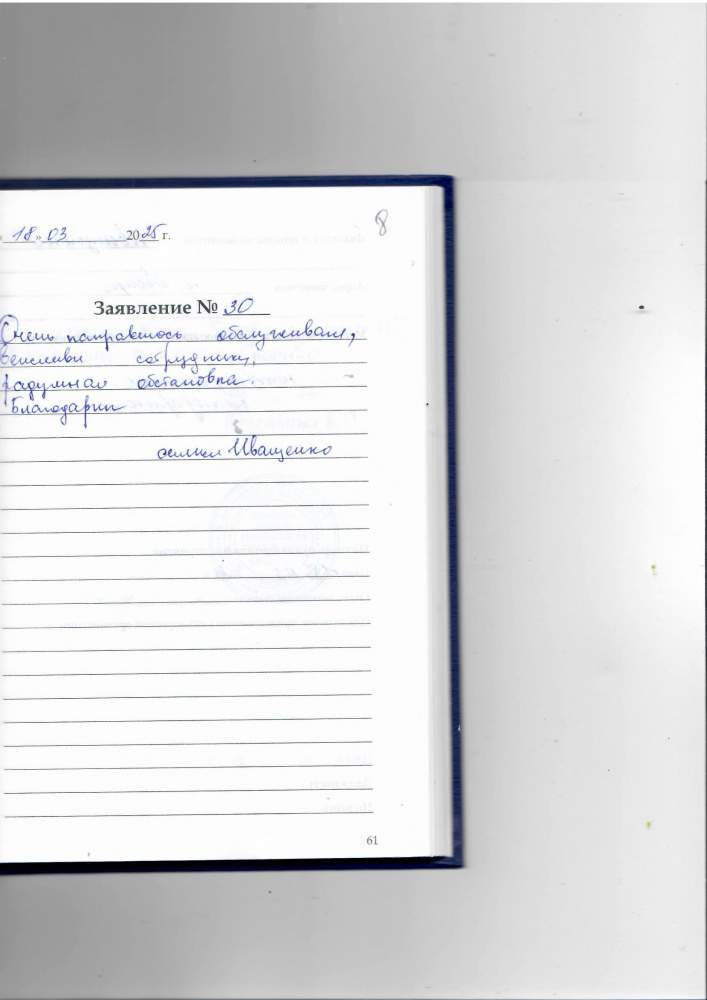 18» 03 2025 г.
8
Заявление № 30
Очень понравилось обслуживание,
вежливы сотрудники,
радушная обстановка.
Благодарим
семья Иващенко
61